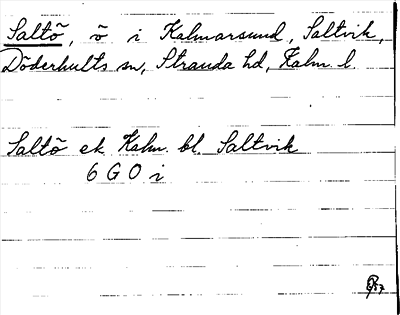 Saltö, ö i Kalmarsund, Saltvik,
Döderhults sn, Stranda hd, Kalm. l.
Saltö ek. Kalm. bl. Saltvik
6 G O i